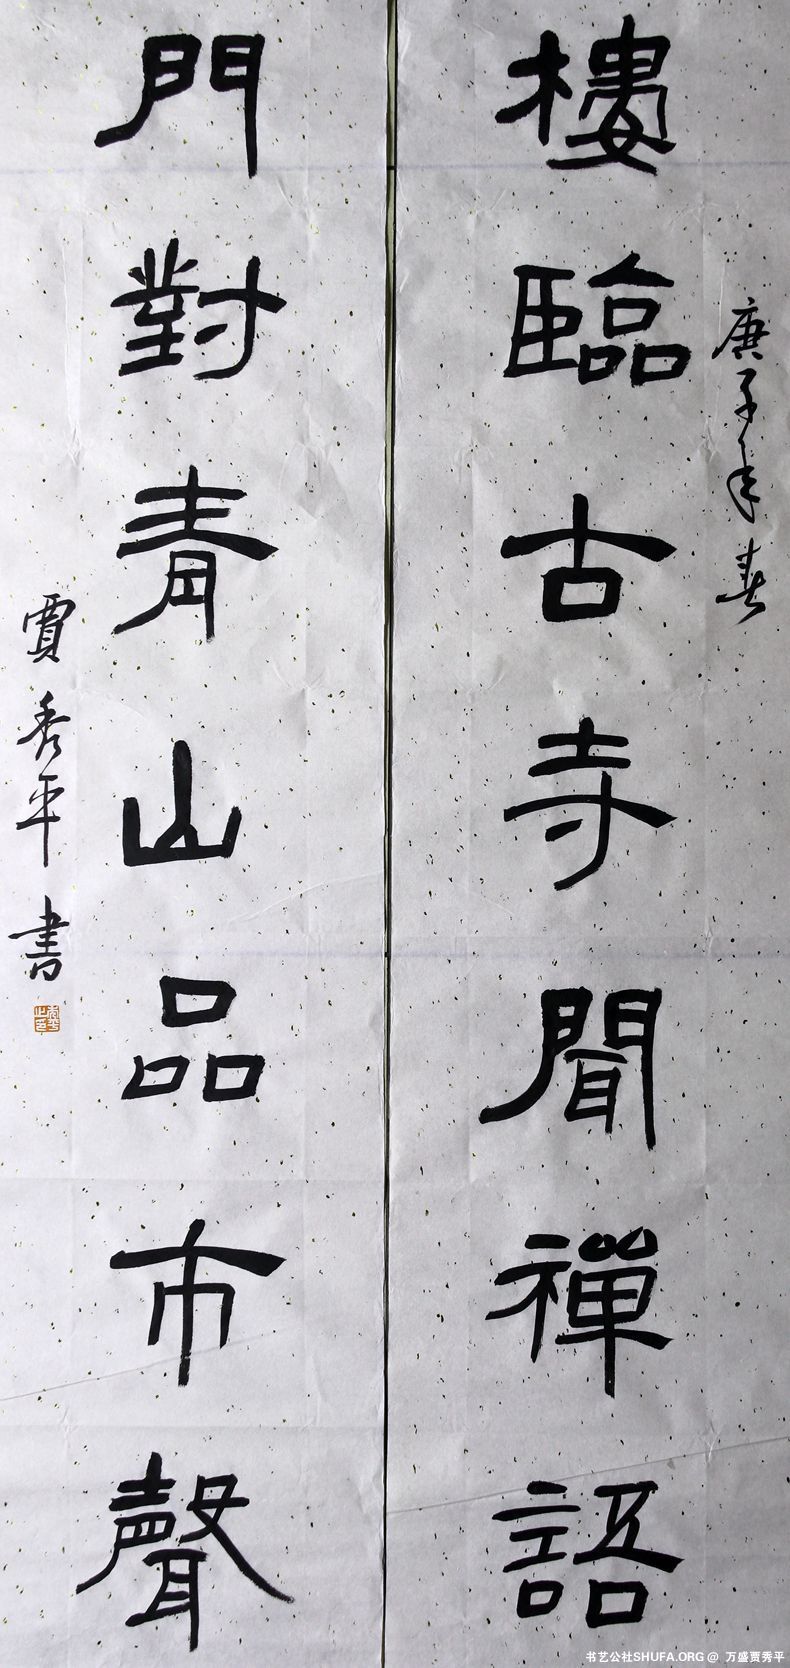 庚子年春
樓臨古寺聞禪語
門對青山品市聲
賈秀平書
书艺公社SHUFA.ORG @ 万盛贾秀平